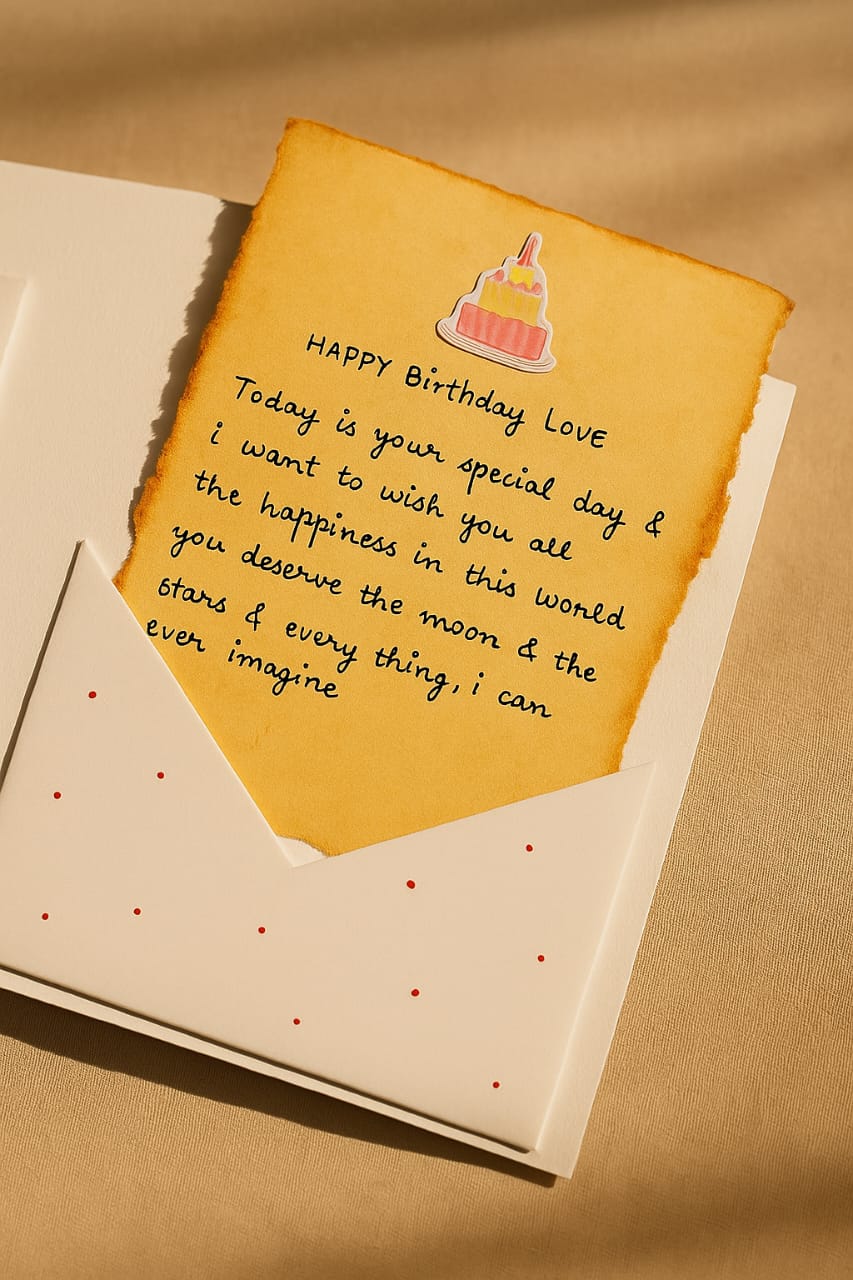 HAPPY Birthday LOVE
Today is your special day &
i want to wish you all
the happiness in this world
you deserve the moon & the
stars & every thing, i can
ever imagine